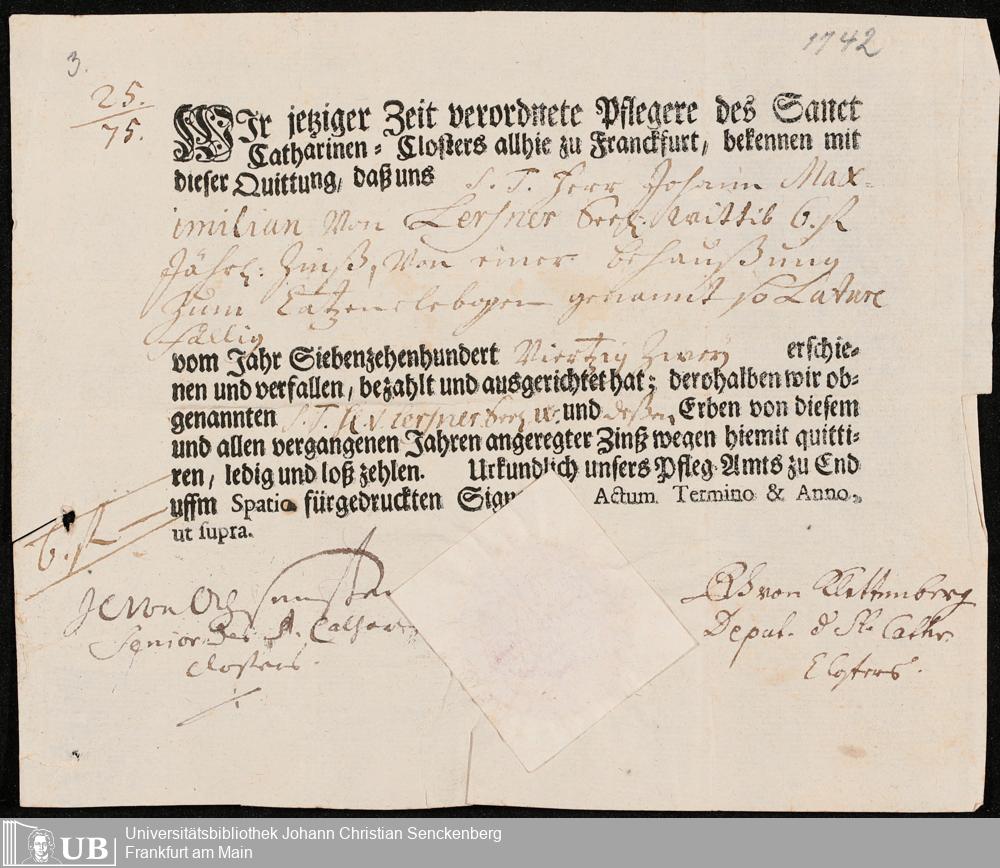 1742
3.
25.
75.
WIr jetziger Zeit verordnete Pflegere des Sanct
Catharinen-Closters allhie zu Franckfurt, bekennen mit
dieser Quittung, daß uns S. T. Herr Johann Max-
imilian Von Lersner Seel. Wittib 6. fl
Jährl: Zinß, Von einer behaußung
Zum Catzenelebogen genannt so Lætare
fällig
vom Jahr Siebenzehenhundert Viertzig Zwey erschie-
nen und verfallen, bezahlt und ausgerichtet hat; derohalben wir ob-
genannten S. T. H. v. Lersner Seel. W. und deßen Erben von diesem
und allen vergangenen Jahren angeregter Zinß wegen hiemit quitti-
ren, ledig und loß zehlen. Urkundlich unsers Pfleg-Amts zu End
uffm Spatio fürgedruckten Sign Actum Termino & Anno,
ut supra.
6. fl
Senior des St. Cathar
Closters.
von Klettenberg
Deput. d St. Cathr.
Closters.
UB
Universitätsbibliothek Johann Christian Senckenberg
Frankfurt am Main